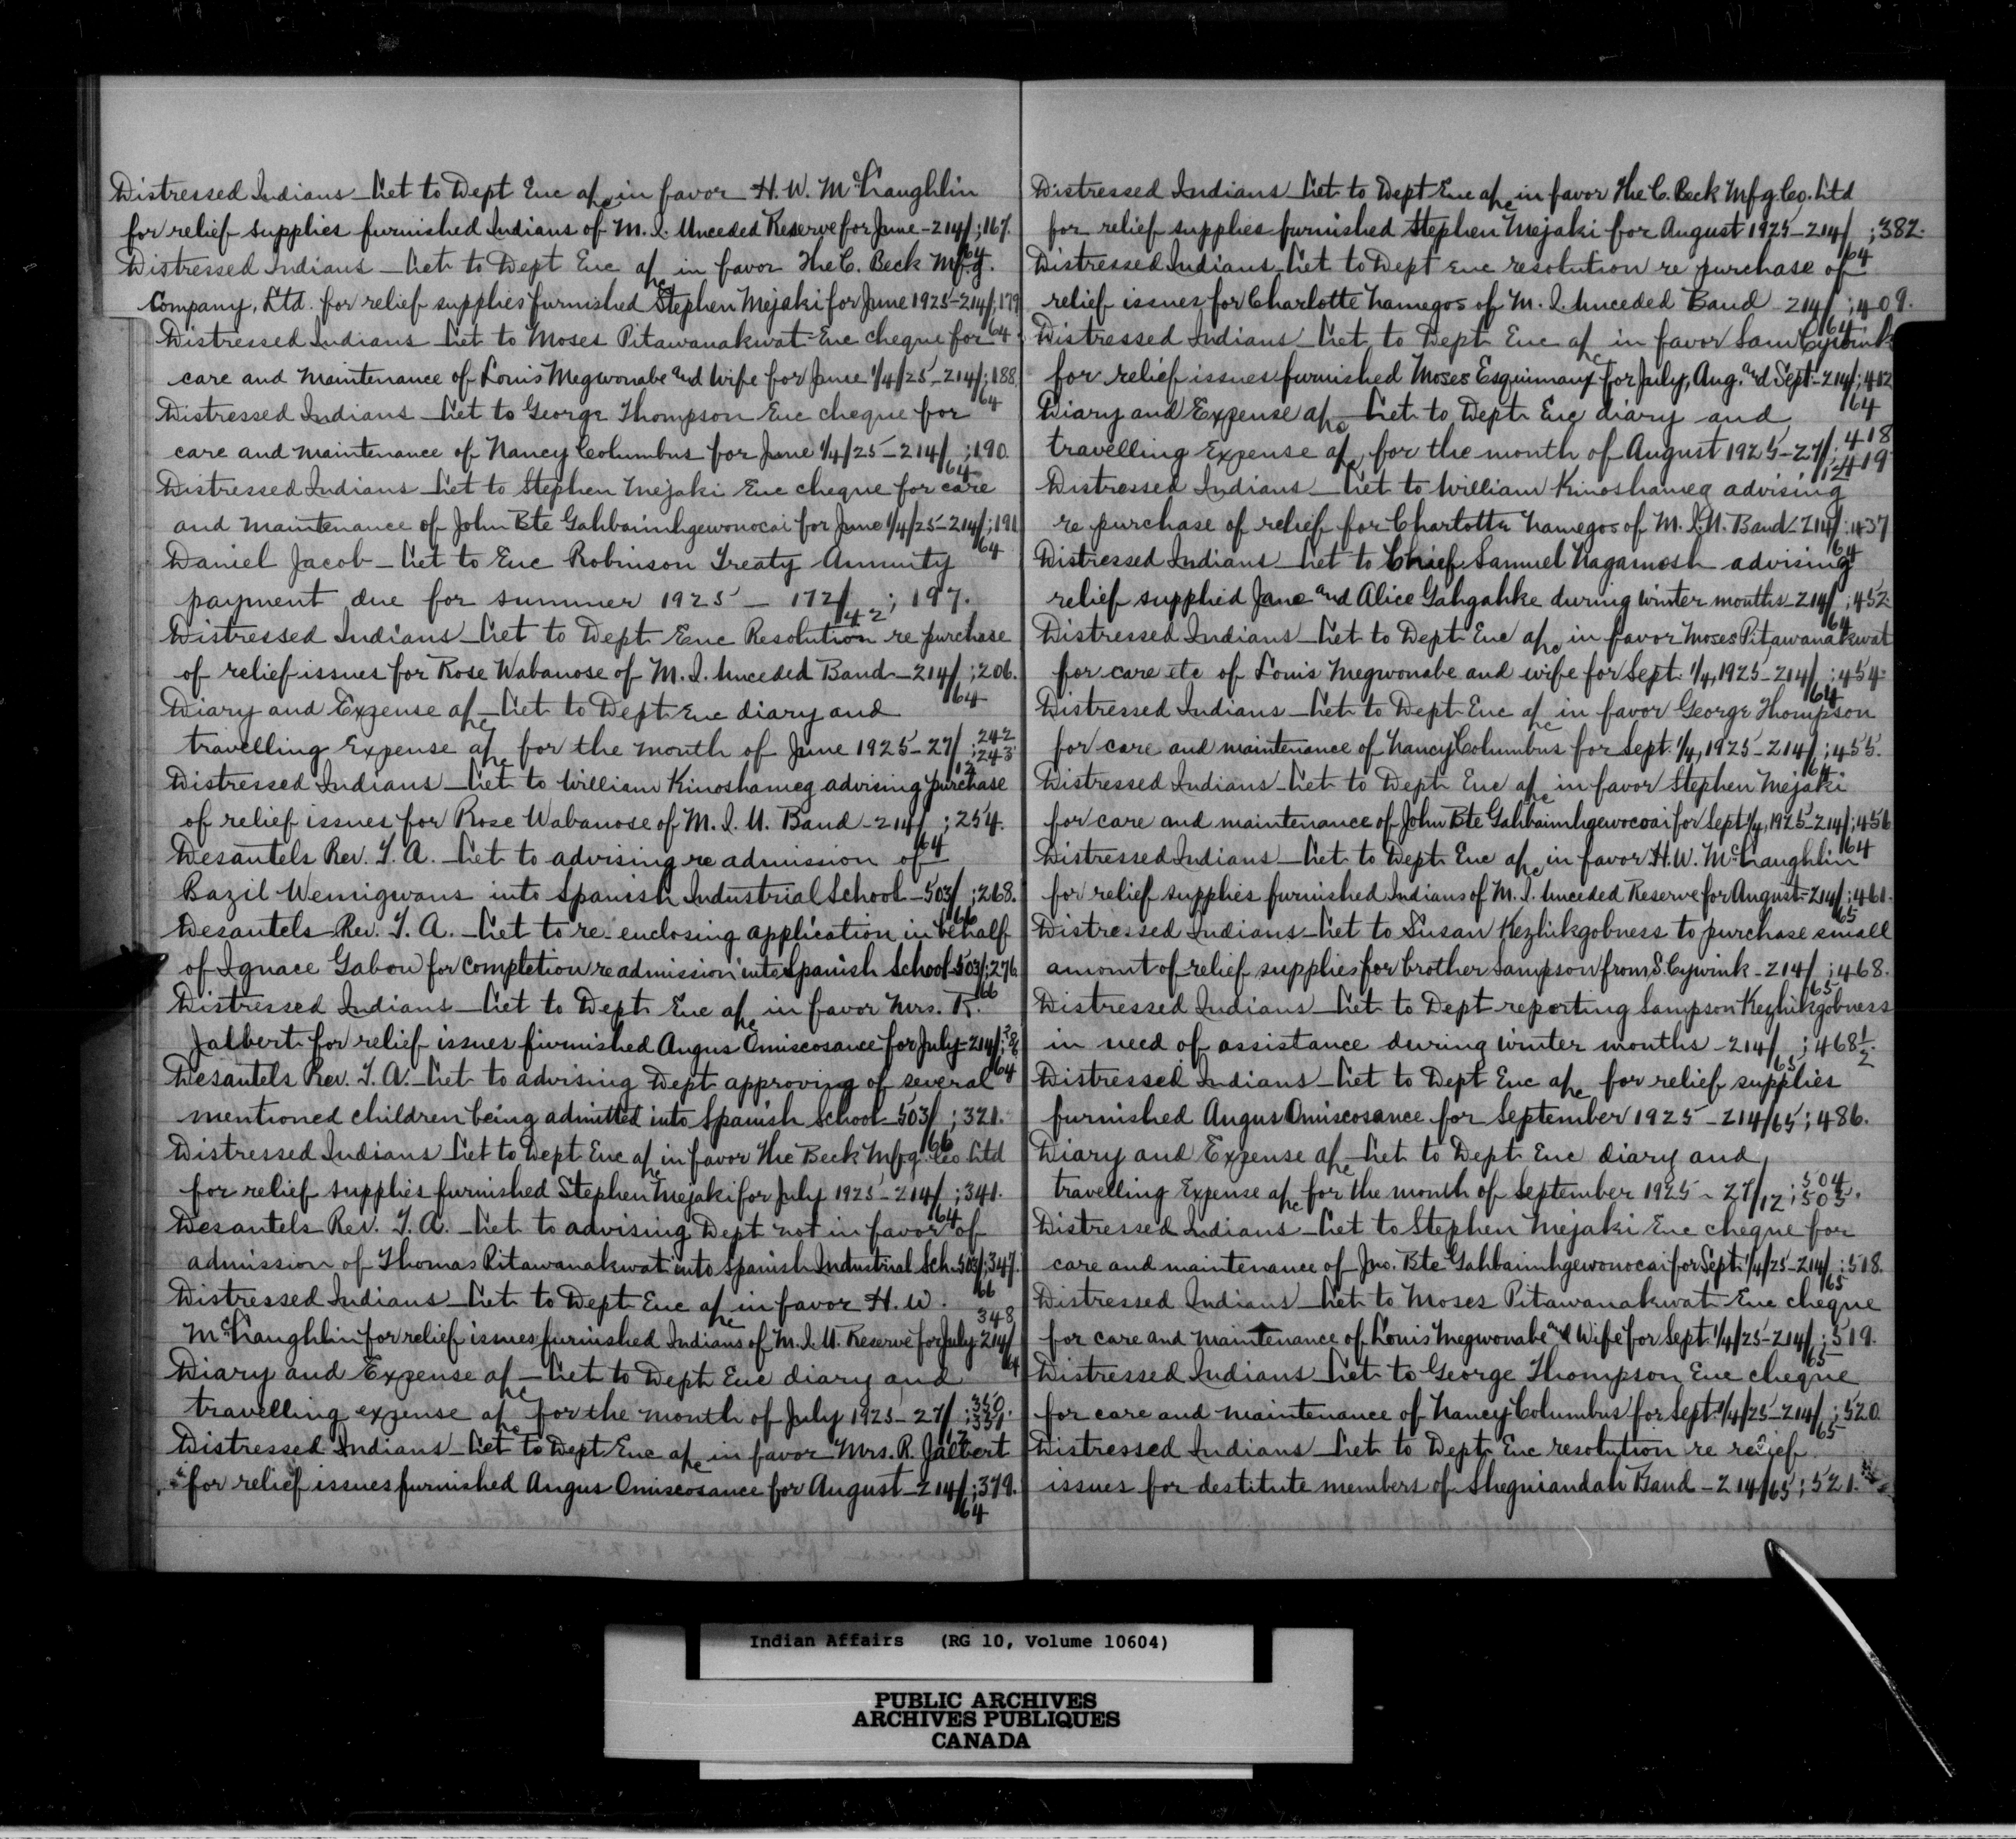 Distressed Indians – Let to Dept Enc a/c in favor H. W. McLaughlin
for relief supplies furnished Indians of M. I. Unceded Reserve for June – 214/64; 167.
Distressed Indians – Let to Dept Enc a/c in favor The C. Beck Mfg.
Company, Ltd. for relief supplies furnished Stephen Mejaki for June 1925 – 214/64; 179
Distressed Indians Let to Moses Pitawanakwat Enc cheque for
care and maintenance of Louis Megwonabe and Wife for June 1/4/25 – 214/64; 188
Distressed Indians – Let to George Thompson Enc cheque for
care and maintenance of Nancy Columbus for June 1/4/25 – 214/64; 190
Distressed Indians Let to Stephen Mejaki Enc cheque for care
and maintenance of John Bte Gahbaimhgewonocai for June 1/4/25 – 214/64; 191
Daniel Jacob – Let to Enc Robinson Treaty Annuity
payment due for summer 1925 – 172/42; 197.
Distressed Indians – Let to Dept Enc Resolution re purchase
of relief issues for Rose Wabanose of M. I. Unceded Band – 214/64; 206.
Diary and Expense a/c – Let to Dept Enc diary and
travelling Expense a/c for the month of June 1925 – 27/12; 242; 243
Distressed Indians – Let to William Kinoshameg advising purchase
of relief issues for Rose Wabanose of M. I. U. Band – 214/64; 254.
Desautels Rev. T. A. – Let to advising re admission of
Bazil Wemigwans into Spanish Industrial School – 503/66; 268.
Desautels Rev. T. A. – Let to re enclosing application in behalf
of Ignace Gabow for completion re admission into Spanish School 503/66; 276
Distressed Indians – Let to Dept Enc a/c in favor Mrs. R.
Jalbert for relief issues furnished Angus Omiscosance for July – 214/64;
Desautels Rev. T. A. – Let to advising Dept approving of several
mentioned children being admitted into Spanish School – 503/66; 321.
Distressed Indians Let to Dept Enc a/c in favor The Beck Mfg. Co Ltd
for relief supplies furnished Stephen Mejaki for July 1925 – 214/64; 341.
Desautels Rev. T. A. – Let to advising Dept not in favor of
admission of Thomas Pitawanakwat into Spanish Industrial Sch. 503/66; 347.
Distressed Indians – Let to Dept Enc a/c in favor H. W.
McLaughlin for relief issues furnished Indians of M. I. U. Reserve for July 214/64 348
Diary and Expense a/c – Let to Dept Enc diary and
travelling expense a/c for the month of July 1925 – 27/12; 350; 351
Distressed Indians – Let to Dept Enc a/c in favor Mrs. R. Jalbert
for relief issues furnished Angus Omiscosance for August – 214/64; 379.
Distressed Indians – Let to Dept Enc a/c in favor The C. Beck Mfg. Co. Ltd
for relief supplies furnished Stephen Mejaki for August 1925 – 214/64; 382.
Distressed Indians – Let to Dept Enc resolution re purchase of
relief issues for Charlotte Namegos of M. I. Unceded Band – 214/64; 409.
Distressed Indians – Let to Dept Enc a/c in favor Sam Cywink
for relief issues furnished Moses Esquimaux for July, Aug. and Sept – 214/64; 412
Diary and Expense a/c – Let to Dept Enc diary and
travelling Expense a/c for the month of August 1925 – 27/12; 418 419
Distressed Indians – Let to William Kinoshameg advising
re purchase of relief for Charlotte Namegos of M. I. U. Band – 214/64; 437
Distressed Indians – Let to Chief Samuel Nagamosh advising
relief supplied Jane and Alice Gahgahke during winter months – 214/64; 452
Distressed Indians – Let to Dept Enc a/c in favor Moses Pitawanakwat
for care etc of Louis Megwonabe and wife for Sept. 1/4, 1925 – 214/64; 454
Distressed Indians – Let to Dept Enc a/c in favor George Thompson
for care and maintenance of Nancy Columbus for Sept. 1/4, 1925 – 214/64; 455.
Distressed Indians – Let to Dept Enc a/c in favor Stephen Mejaki
for care and maintenance of John Bte Gahbaimhgewocoai for Sept 1/4, 1925 – 214/64; 456
Distressed Indians – Let to Dept Enc a/c in favor H. W. McLaughlin
for relief supplies furnished Indians of M. I. Unceded Reserve for August – 214/65; 461.
Distressed Indians – Let to Susan Kezhikgobness to purchase small
amount of relief supplies for brother Sampson from S. Cywink – 214/65; 468.
Distressed Indians – Let to Dept reporting Sampson Kezhikgobness
in need of assistance during winter months – 214/65; 468½.
Distressed Indians – Let to Dept Enc a/c for relief supplies
furnished Angus Omiscosance for September 1925 – 214/65; 486.
Diary and Expense a/c – Let to Dept Enc diary and
travelling Expense a/c for the month of September 1925 – 27/12; 504; 505.
Distressed Indians – Let to Stephen Mejaki Enc cheque for
care and maintenance of Jno. Bte Gahbaimhgewonocai for Sept. 1/4/25 – 214/65; 518.
Distressed Indians – Let to Moses Pitawanakwat Enc cheque
for care and maintenance of Louis Megwonabe and Wife for Sept 1/4/25 – 214/65; 519.
Distressed Indians Let to George Thompson Enc cheque
for care and maintenance of Nancy Columbus for Sept. 1/4/25 – 214/65; 520
Distressed Indians – Let to Dept Enc resolution re relief
issues for destitute members of Sheguiandah Band – 214/65; 521.
Indian Affairs (RG 10, Volume 10604)
PUBLIC ARCHIVES
ARCHIVES PUBLIQUES
CANADA